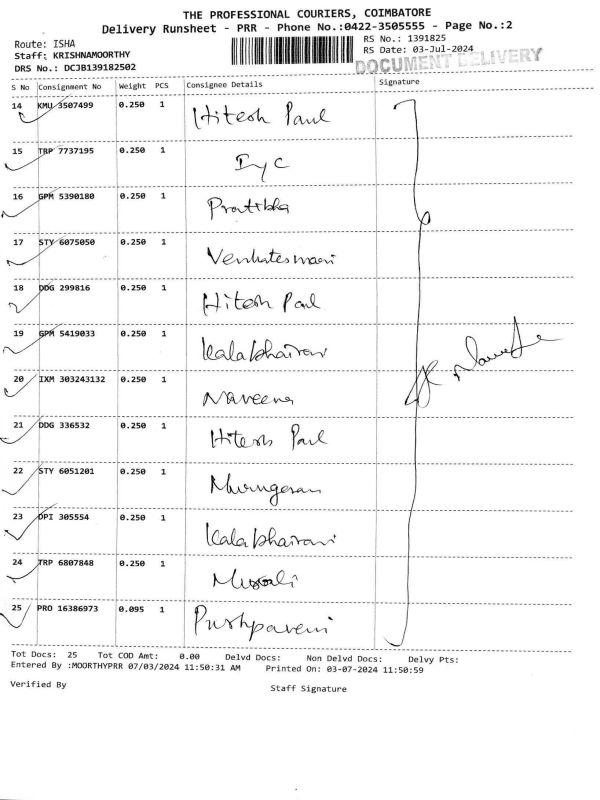 THE PROFESSIONAL COURIERS, COIMBATORE
Delivery Runsheet - PRR - Phone No.:0422-3505555 - Page No.:2
Route: ISHA
RS No.: 1391825
Staff: KRISHNAMOORTHY
RS Date: 03-Jul-2024
DRS No.: DCJB139182502
DOCUMENT DELIVERY
S No Consignment No Weight PCS Consignee Details Signature
14 KMU 3507499 0.250 1 Hitesh Paul
15 TRP 7737195 0.250 1 Iyc
16 GPM 5390180 0.250 1 Pratibha
17 STY 6075050 0.250 1 Venkateswari
18 DDG 299816 0.250 1 Hitesh Paul
19 GPM 5419033 0.250 1 Kalabhairavi
20 IXM 303243132 0.250 1 Naveena
21 DDG 336532 0.250 1 Hitesh Paul
22 STY 6051201 0.250 1 Murugesan
23 DPI 305554 0.250 1 Kalabhairavi
24 TRP 6807848 0.250 1 Murali
25 PRO 16386973 0.095 1 Pushpaveni
Tot Docs: 25 Tot COD Amt: 0.00 Delvd Docs: Non Delvd Docs: Delvy Pts:
Entered By :MOORTHYPRR 07/03/2024 11:50:31 AM Printed On: 03-07-2024 11:50:59
Verified By
Staff Signature